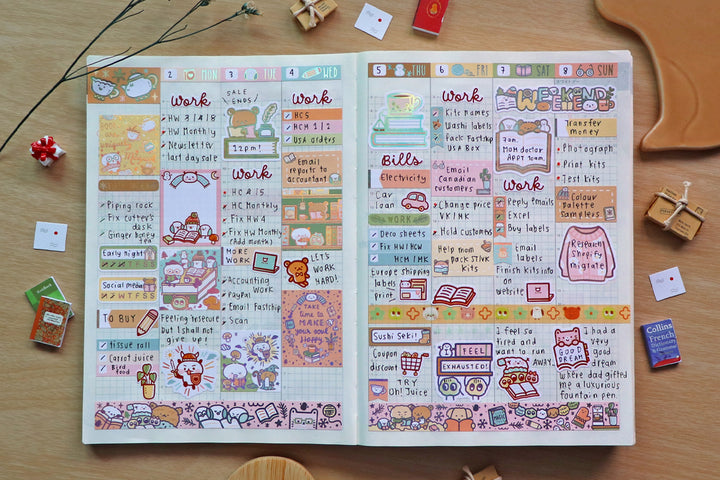 2 MON
3 TUE
4 WED
Work
HW 3/4/8
HW Monthly
Newsletter
last day sale
Piping rock
Fix cutter's
desk
Early night
Social media
W T F S S
TO BUY
Tissue roll
Carrot juice
Bird
food
Feeling insecure
but I shall not
give up!
SALE
ENDS!
12pm!
Work
HC 2/5
HC Monthly
Fix HW 4
Fix HW Monthly
(Add month)
MORE
WORK
Accounting
work
PayPal
Email Fastship
Scan
Work
HC 5
HCM 1/2
USA orders
Email
reports to
accountant
LET'S
WORK
HARD!
TAKE
time to
MAKE
your soul
Happy
5 THU
6 FRI
7 SAT
8 SUN
Bills
Electricity
Car
loan
WORK
Deco sheets
Fix HW/HCW
HCM/MK
Europe shipping
labels
print
Sushi Seki!
Coupon
discount
TRY
Oh! Juice
Work
Kits names
Washi labels
Pack Fastship
USA Box
Email
Canadian
customers
Change price
VK/NK
Hold customers
Help mom
pack St/VK
kits
I FEEL
EXHAUSTED!
WEEKEND
7am.
MOM doctor
APPT TOWN.
Work
Reply emails
Excel
Buy labels
Email
labels
Finish kits info
on
website
I feel so
tired and
want to run
AWAY.
Transfer
money
Photograph
Print kits
Test kits
Colour
Palette
Samplers
Research
Shopify
migrate
GOOD
DREAM
I had a
very
good
dream
where dad gifted
me a luxurious
fountain pen.
Collins
French
Dictionary